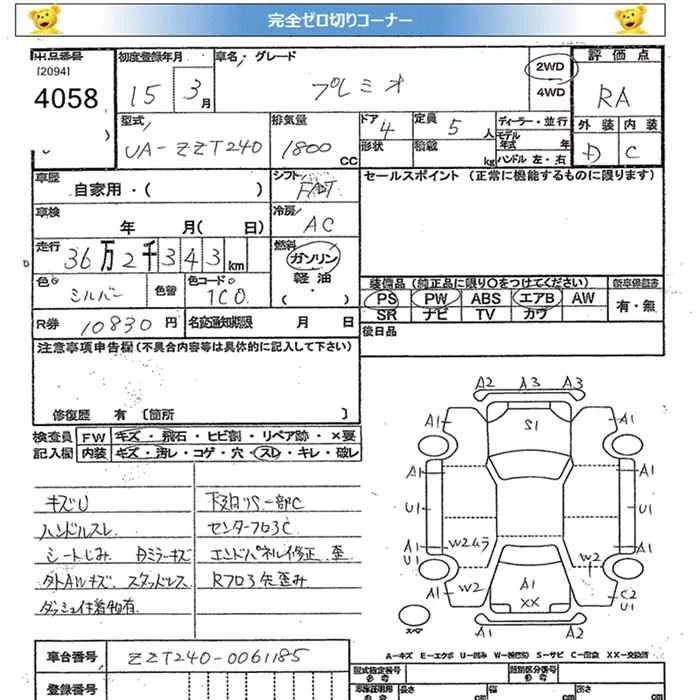 完全ゼロ切りコーナー
出品番号 初度登録年月 車名・グレード 2WD 評価点
[2094]
4058 15 3月 プレミオ 4WD RA
型式 排気量 ドア 定員 ディーラー・並行 外装 内装
UA-ZZT240 1800CC 4 5人 モデル年式 年 D C
形状 積載 kg ハンドル 左・右
車歴 自家用・( ) シフト FAT セールスポイント (正常に機能するものに限ります)
車検 年 月( 日) 冷房 AC
走行 36万2千343km 燃料 ガソリン
軽油
色 シルバー 色替 色コード 1C0 ・( )
装備品 (純正品に限り○をつけてください) 新車保証書
PS PW ABS エアB AW 有・無
SR ナビ TV カワ
R券 10830円 名変通知期限 月 日 後日品
注意事項申告欄(不具合内容等は具体的に記入して下さい)
修復歴 有 [箇所 ]
検査員 FW キズ・飛石・ヒビ割・リペア跡・×要
記入欄 内装 キズ・汚レ・コゲ・穴・スレ・キレ・破レ
キズU 下廻リS一部C
ハンドルスレ センターフロアC
シートじみ 内ミラーキズ エンドパネル修正 歪
外AWキズ スタッドレス Rフロア先歪み
ダッシュ付着物有
A2 A3 A3
A1 S1 A1
A1 A1
U1 U1
A1 W2ムラ A1 U1
W2 W2
A1 A1 XX C2 U1
スペア A1 A2
A-キズ E-エクボ U-凹み W-(補修)跡 S-サビ C-腐食 XX-交換済
車台番号 ZZT240-0061185
型式指定番号 参考 類別区分番号 参考
登録番号 長さ cm 幅 cm 高さ cm